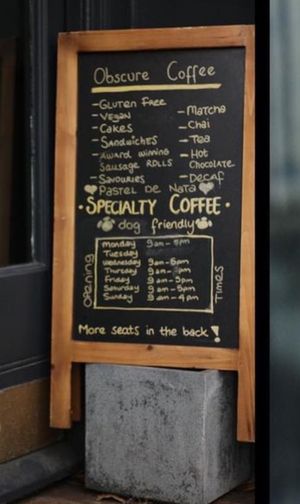 Obscure Coffee
- Gluten Free
- Vegan
- Cakes
- Sandwiches
- Award winning
Sausage Rolls
- Savouries
- Matcha
- Chai
- Tea
- Hot
Chocolate
- Decaf
Pastel De Nata
• Specialty Coffee •
dog friendly
Opening
Monday 9am - pm
Tuesday
Wednesday 9am - 5pm
Thursday 9am - pm
Friday 9am - 5pm
Saturday 9am - 5pm
Sunday 9am - 4pm
Times
More seats in the back!